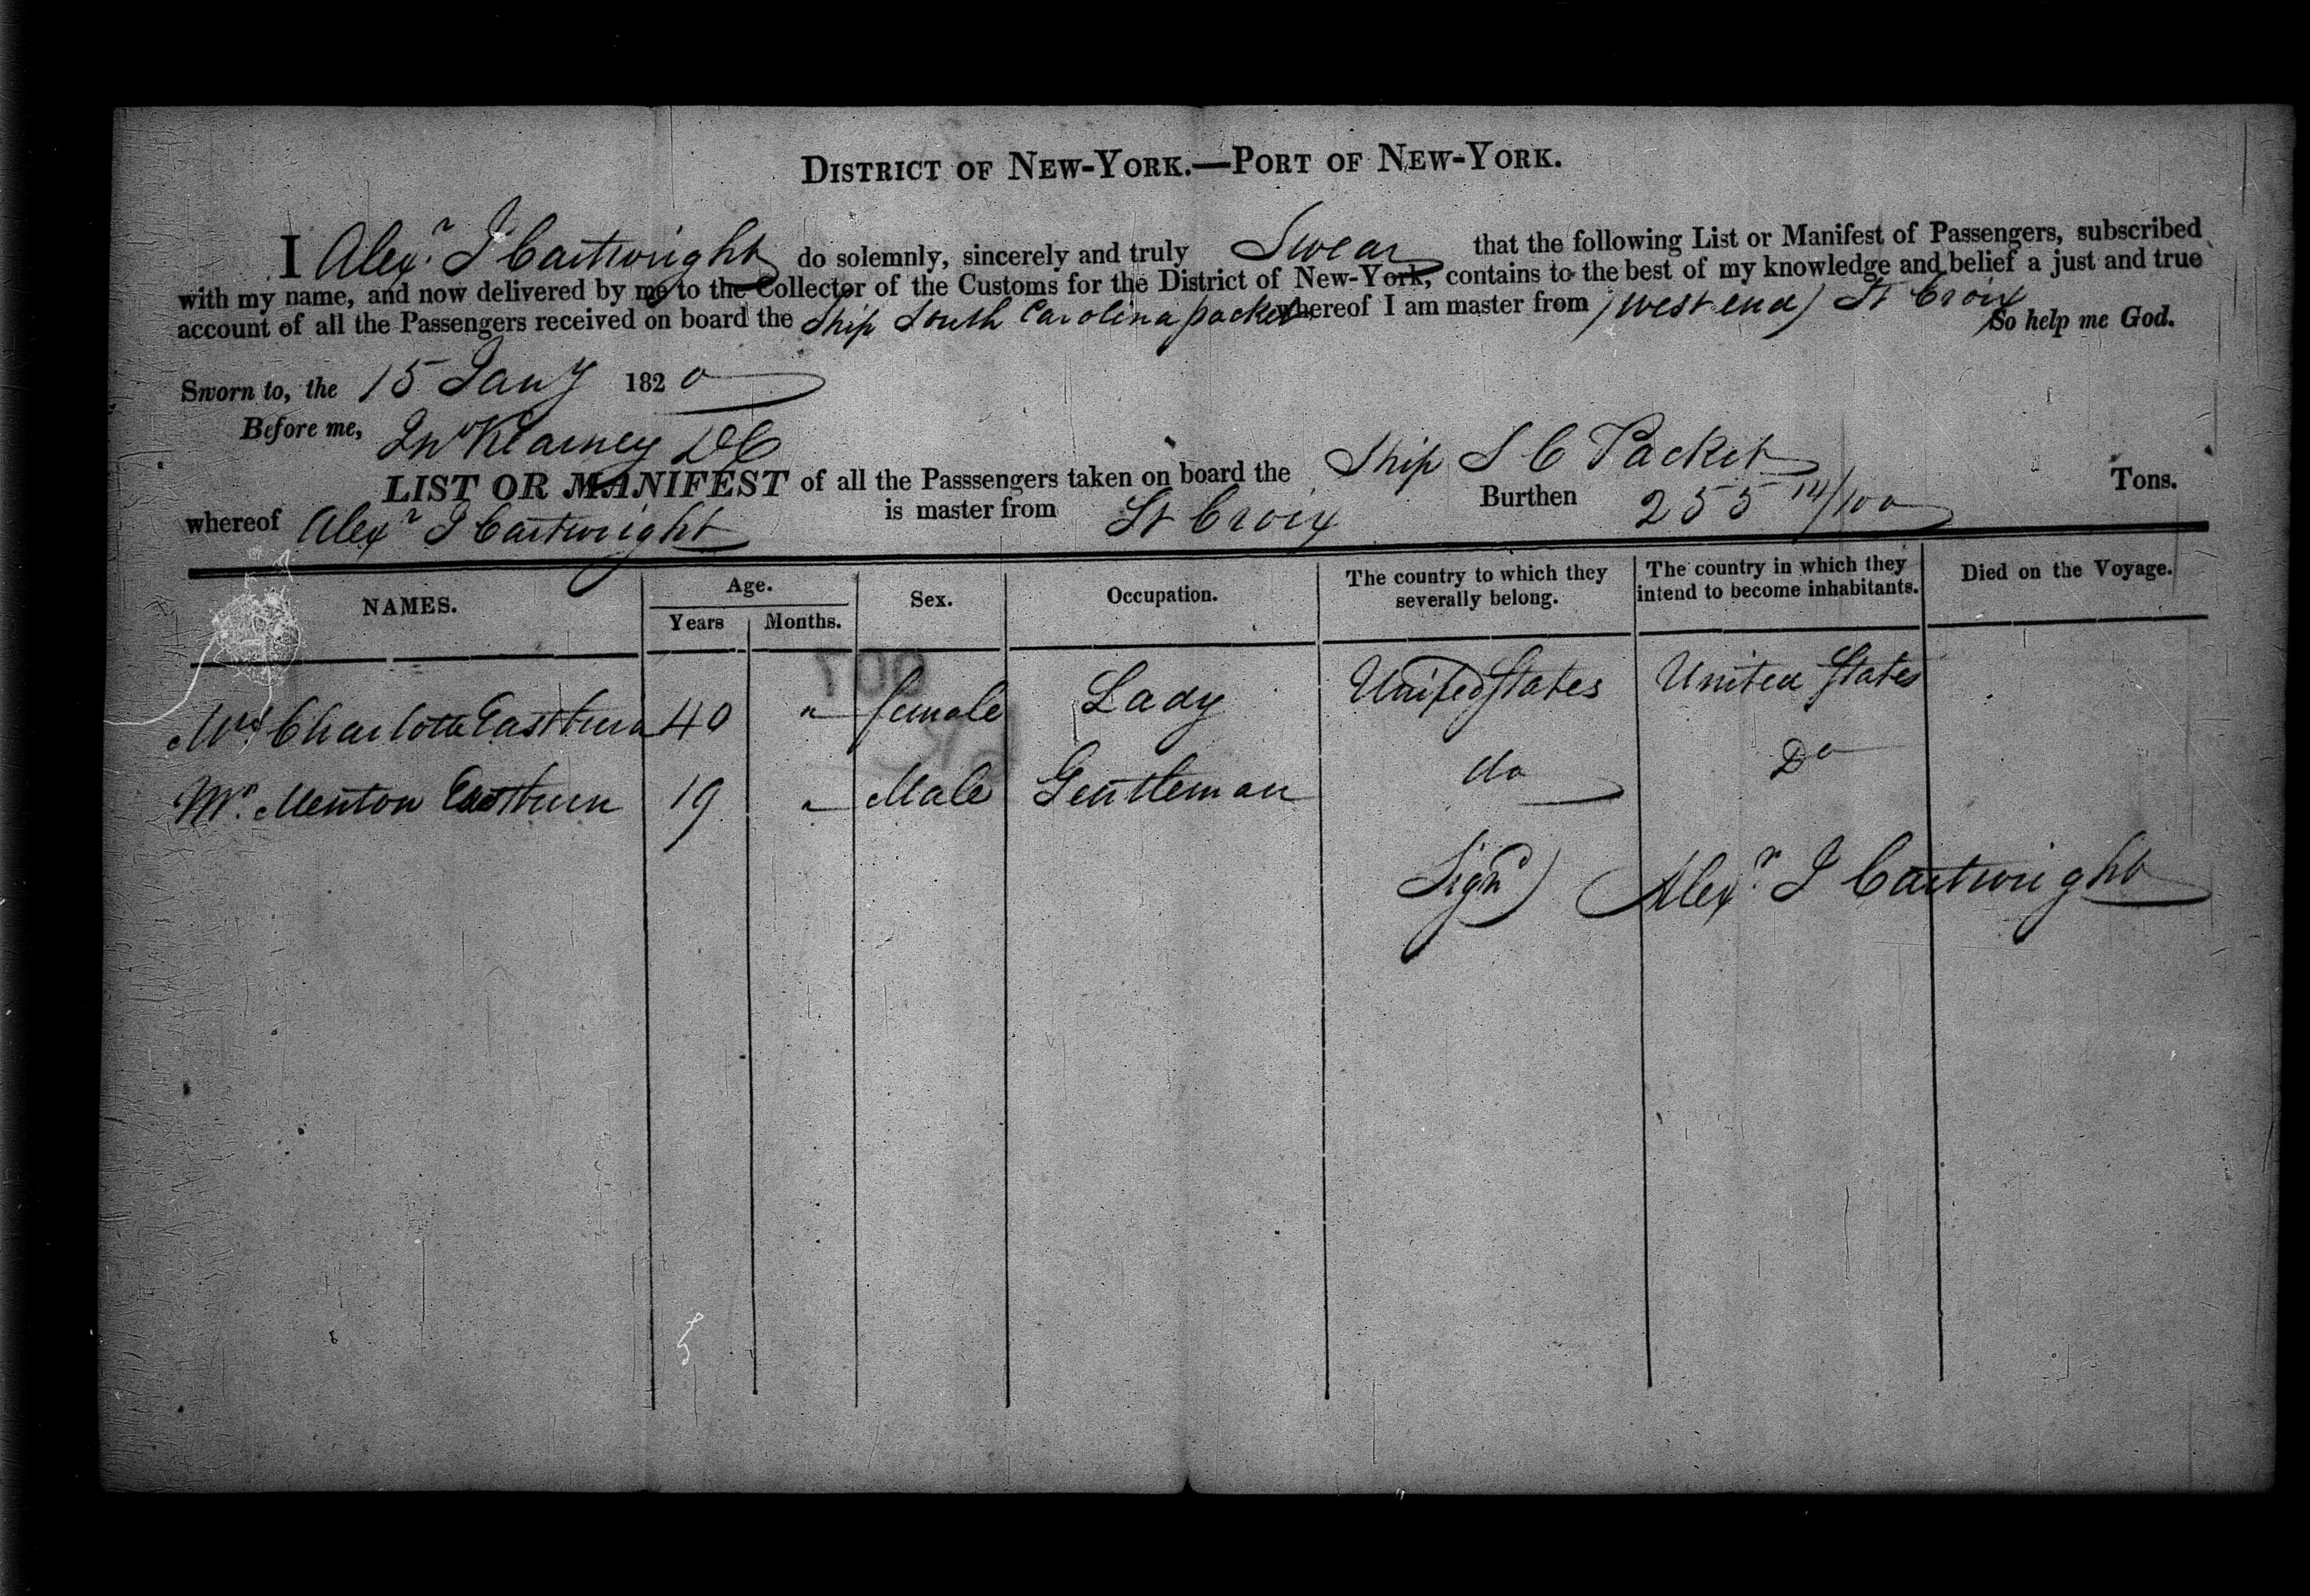 DISTRICT OF NEW-YORK.—PORT OF NEW-YORK.
I Alexr. J Cartwright do solemnly, sincerely and truly Swear that the following List or Manifest of Passengers, subscribed
with my name, and now delivered by me to the Collector of the Customs for the District of New-York, contains to the best of my knowledge and belief a just and true
account of all the Passengers received on board the Ship South Carolina packet whereof I am master from (West end) St Croix So help me God.
Sworn to, the 15 Jany 1820
Before me, Jno Kearney DC
LIST OR MANIFEST of all the Passsengers taken on board the Ship S C Packet
whereof Alexr J Cartwright is master from St Croix Burthen 255 14/100 Tons.
NAMES. Age. Sex. Occupation. The country to which they severally belong. The country in which they intend to become inhabitants. Died on the Voyage.
Years Months.
Mrs Charlotte Eastburn 40 " female Lady United States United States
Mr. Menton Eastburn 19 " Male Gentleman do Do
Signd) Alexr. J Cartwright